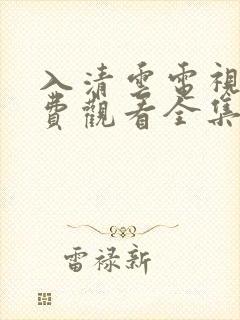 入清雲電視
費觀看全集
雷禄新